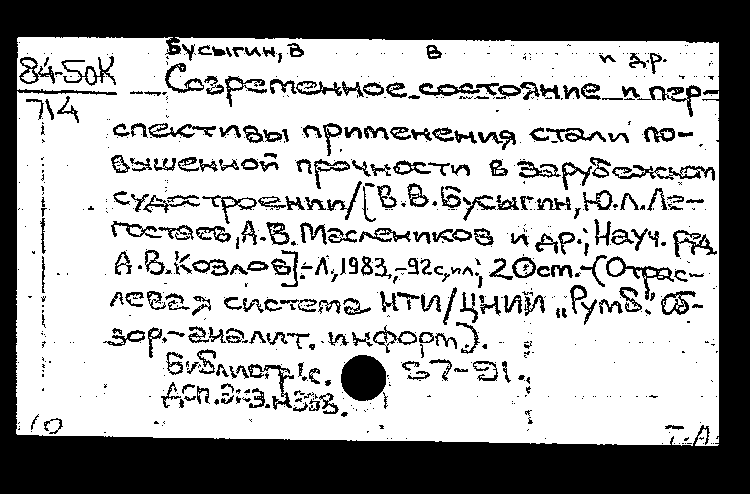 Бусыгин, В В и др.
84-50К
714
Современное состояние и пер-
спективы применения стали по-
вышенной прочности в зарубежном
судостроении/[В.В.Бусыгин,Ю.Л.Ле-
гостаев,А.В.Маслеников и др.; Науч. ред
А.В.Козлов].-Л.,1983,-92с,ил.; 20см.-(Отрас-
левая система НТИ/ЦНИИ „Румб". Об-
зор.-аналит. информ.).
Библиогр.: с. 87-91.
ДСП. Экз.N
10 Т-А